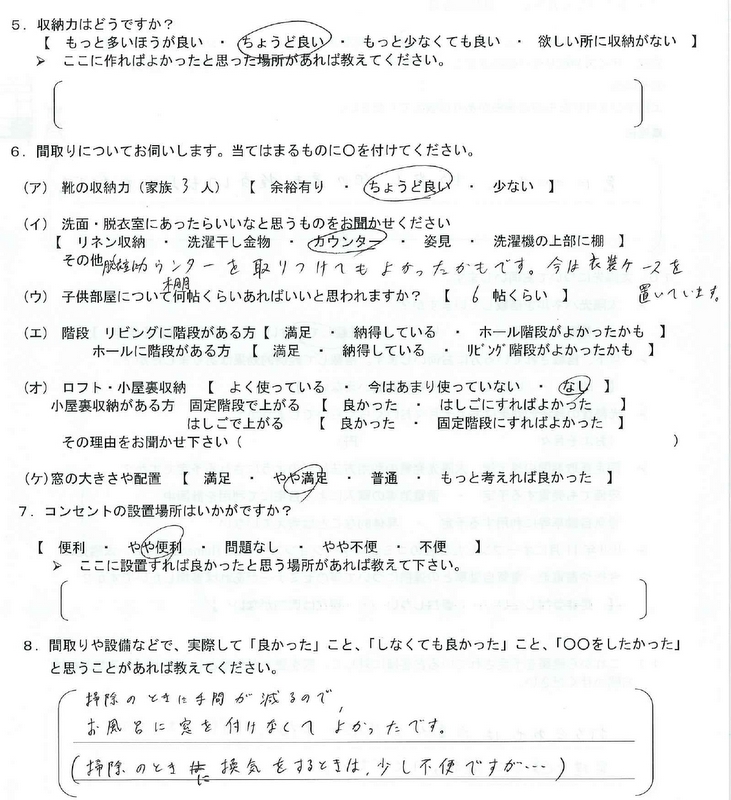 5．収納力はどうですか？
【　もっと多いほうが良い　・　ちょうど良い　・　もっと少なくても良い　・　欲しい所に収納がない　】
➢　ここに作ればよかったと思った場所があれば教えてください。
6．間取りについてお伺いします。当てはまるものに〇を付けてください。
（ア）　靴の収納力（家族 3 人）　【　余裕有り　・　ちょうど良い　・　少ない　】
（イ）　洗面・脱衣室にあったらいいなと思うものをお聞かせください
【　リネン収納　・　洗濯干し金物　・　カウンター　・　姿見　・　洗濯機の上部に棚　】
その他　カウンターを取りつけてもよかったかもです。今は衣装ケースを
棚
置いています。
（ウ）　子供部屋について何帖くらいあればいいと思われますか？　【　6　帖くらい　】
（エ）　階段　リビングに階段がある方【　満足　・　納得している　・　ホール階段がよかったかも　】
ホールに階段がある方　【　満足　・　納得している　・　ﾘﾋﾞﾝｸﾞ階段がよかったかも　】
（オ）　ロフト・小屋裏収納　【　よく使っている　・　今はあまり使っていない　・　なし　】
小屋裏収納がある方　固定階段で上がる　【　良かった　・　はしごにすればよかった　】
はしごで上がる　【　良かった　・　固定階段にすればよかった　】
その理由をお聞かせ下さい（　　　　）
（ケ）窓の大きさや配置　【　満足　・　やや満足　・　普通　・　もっと考えれば良かった　】
7．コンセントの設置場所はいかがですか？
【　便利　・　やや便利　・　問題なし　・　やや不便　・　不便　】
➢　ここに設置すれば良かったと思う場所があれば教えて下さい。
8．間取りや設備などで、実際して「良かった」こと、「しなくても良かった」こと、「〇〇をしたかった」
と思うことがあれば教えてください。
掃除のときに手間が減るので、
お風呂に窓を付けなくてよかったです。
(掃除のときに換気をするときは、少し不便ですが…)